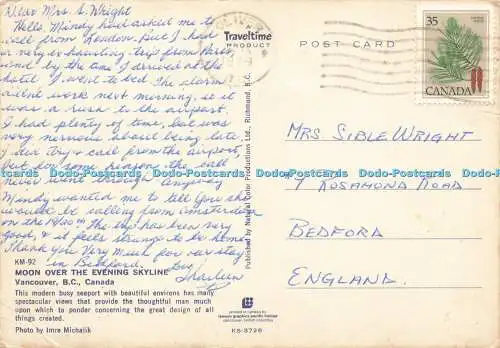 Dear Mrs. S. Wright
Hello, Mindy had asked me to
call from London. But I had
a very exhausting trip from Paris,
and by the time I arrived at the
hotel I went to bed. The alarm
didnt work next morning, so it
was a rush to the airport.
I had plenty of time, but was
very nervous about being late.
I did try & call from the airport,
but for some reason the call
never went through. Anyway
Mindy wanted me to tell you she
would be calling from Amsterdam
on the The trip has been very
good, & it feels strange to be home.
Thank you Very Much for our stay
in Bedford.
KM-92
MOON OVER THE EVENING SKYLINE
Vancouver, B.C., Canada
This modern busy seaport with beautiful environs has many
spectacular views that provide the thoughtful man much
upon which to ponder concerning the great design of all
things created.
Photo by Imre Michalik
Traveltime
PRODUCT
Published by Natural Color Productions Ltd., Richmond, B.C.
printed in canada by
lawson graphics pacific limited
vancouver british columbia
KS-3726
POST CARD
35
CANADA
MRS SIBLE WRIGHT
7 ROSAMOND ROAD
BEDFORD
ENGLAND.
Dodo-Postcards Dodo-Postcards Dodo-Postcards Dodo-Postcards